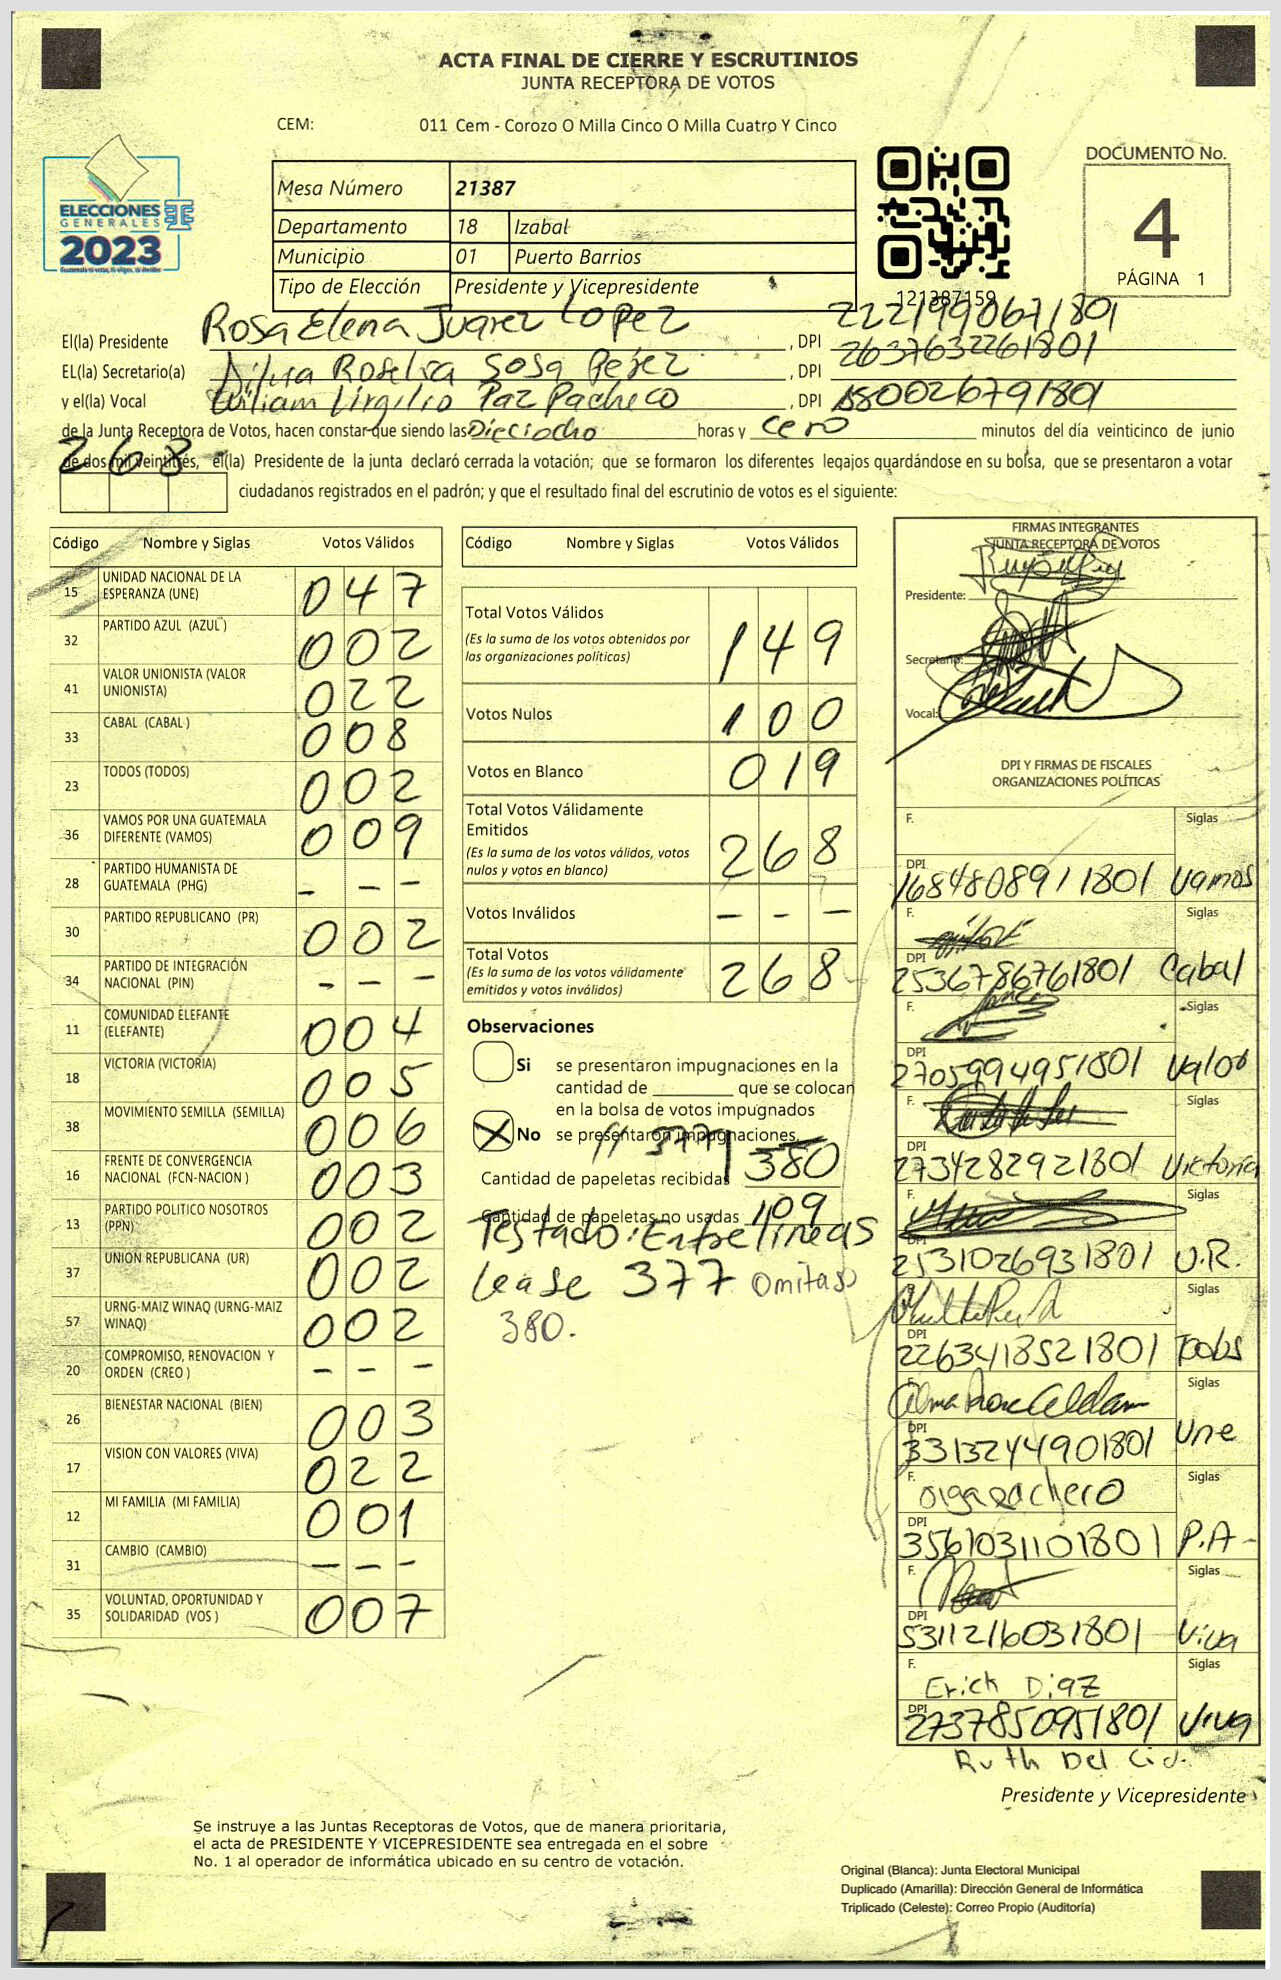 ACTA FINAL DE CIERRE Y ESCRUTINIOS
JUNTA RECEPTORA DE VOTOS
CEM: 011 Cem - Corozo O Milla Cinco O Milla Cuatro Y Cinco
ELECCIONES
GENERALES
2023
Mesa Número 21387
Departamento 18 Izabal
Municipio 01 Puerto Barrios
Tipo de Elección Presidente y Vicepresidente
121387159
DOCUMENTO No.
4
PÁGINA 1
El(la) Presidente Rosa Elena Juarez Lopez, DPI 2221990671801
EL(la) Secretario(a) Dilvia Roselia Sosa Pérez, DPI 2637632261801
y el(la) Vocal William Virgilio Paz Pacheco, DPI 1580026791801
de la Junta Receptora de Votos, hacen constar que siendo las Dieciocho horas y cero minutos del día veinticinco de junio
de dos mil veintitrés, el(la) Presidente de la junta declaró cerrada la votación; que se formaron los diferentes legajos guardándose en su bolsa, que se presentaron a votar
268 ciudadanos registrados en el padrón; y que el resultado final del escrutinio de votos es el siguiente:
Código Nombre y Siglas Votos Válidos
15 UNIDAD NACIONAL DE LA ESPERANZA (UNE) 047
32 PARTIDO AZUL (AZUL) 002
41 VALOR UNIONISTA (VALOR UNIONISTA) 022
33 CABAL (CABAL ) 008
23 TODOS (TODOS) 002
36 VAMOS POR UNA GUATEMALA DIFERENTE (VAMOS) 009
28 PARTIDO HUMANISTA DE GUATEMALA (PHG) - - -
30 PARTIDO REPUBLICANO (PR) 002
34 PARTIDO DE INTEGRACIÓN NACIONAL (PIN) - - -
11 COMUNIDAD ELEFANTE (ELEFANTE) 004
18 VICTORIA (VICTORIA) 005
38 MOVIMIENTO SEMILLA (SEMILLA) 006
16 FRENTE DE CONVERGENCIA NACIONAL (FCN-NACION ) 003
13 PARTIDO POLITICO NOSOTROS (PPN) 002
37 UNION REPUBLICANA (UR) 002
57 URNG-MAIZ WINAQ (URNG-MAIZ WINAQ) 002
20 COMPROMISO, RENOVACION Y ORDEN (CREO ) - - -
26 BIENESTAR NACIONAL (BIEN) 003
17 VISION CON VALORES (VIVA) 022
12 MI FAMILIA (MI FAMILIA) 001
31 CAMBIO (CAMBIO) - - -
35 VOLUNTAD, OPORTUNIDAD Y SOLIDARIDAD (VOS ) 007
Código Nombre y Siglas Votos Válidos
Total Votos Válidos 149
(Es la suma de los votos obtenidos por
las organizaciones políticas)
Votos Nulos 100
Votos en Blanco 019
Total Votos Válidamente
Emitidos 268
(Es la suma de los votos válidos, votos
nulos y votos en blanco)
Votos Inválidos - - -
Total Votos 268
(Es la suma de los votos válidamente
emitidos y votos inválidos)
Observaciones
Si se presentaron impugnaciones en la
cantidad de ________ que se colocan
en la bolsa de votos impugnados
X No se presentaron impugnaciones.
// 377/
Cantidad de papeletas recibidas 380
Cantidad de papeletas no usadas 109
Testado: Entre lineas
Lease 377 omitase
380.
FIRMAS INTEGRANTES
JUNTA RECEPTORA DE VOTOS
Presidente:
Secretario:
Vocal:
DPI Y FIRMAS DE FISCALES
ORGANIZACIONES POLÍTICAS
F. Siglas
DPI 1684808911801 Vamos
F. Siglas
DPI 2536786761801 Cabal
F. Siglas
DPI 2705994951801 Valor
F.
DPI 2734282921801 Victoria
F. Siglas
DPI 2531026931801 U.R.
Siglas
DPI 2263418521801 Todos
F. Siglas
DPI 3313244901801 Une
F. Olga Pacheco Siglas
DPI 3561031101801 P.A-
F. Siglas
DPI 5311216031801 Viva
F. Erick Diaz Siglas
DPI 2737850951801 Viva
Ruth Del Cid.
Presidente y Vicepresidente
Se instruye a las Juntas Receptoras de Votos, que de manera prioritaria,
el acta de PRESIDENTE Y VICEPRESIDENTE sea entregada en el sobre
No. 1 al operador de informática ubicado en su centro de votación.
Original (Blanca): Junta Electoral Municipal
Duplicado (Amarilla): Dirección General de Informática
Triplicado (Celeste): Correo Propio (Auditoría)